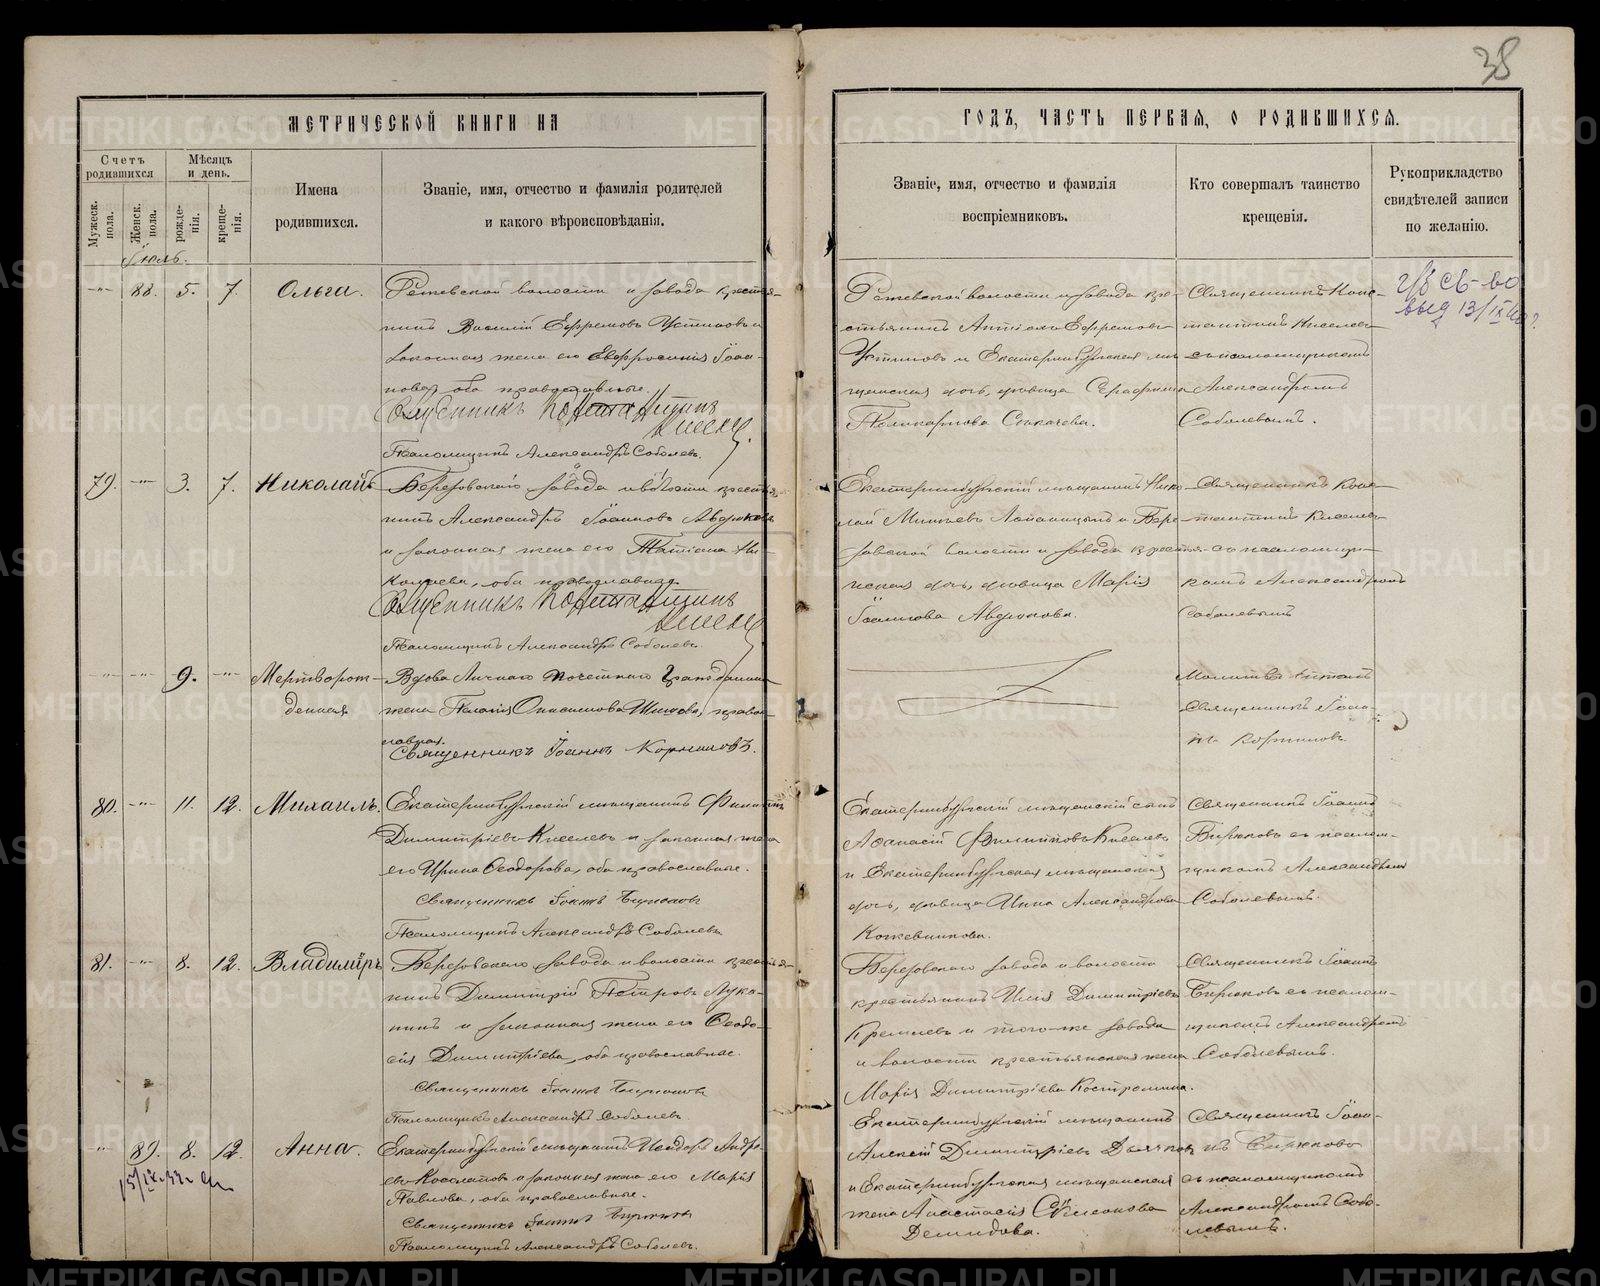 38
МЕТРИЧЕСКОЙ КНИГИ НА
ГОДЪ, ЧАСТЬ ПЕРВАЯ, О РОДИВШИХСЯ.
Счетъ родившихся
Мужеск. пола.
Женск. пола.
Мѣсяцъ и день.
рожде-нія.
креще-нія.
Имена
родившихся.
Званіе, имя, отчество и фамилія родителей
и какого вѣроисповѣданія.
Званіе, имя, отчество и фамилія
воспріемниковъ.
Кто совершалъ таинство
крещенія.
Рукоприкладство
свидѣтелей записи
по желанію.
Іюль.
88. 5. 7. Ольга.
Режевской волости и завода кресть-
янинъ Василій Ефремовъ Устиновъ и
законная жена его Евфросинія Іоан-
нова, оба православные.
Священникъ Константинъ
Киселевъ.
Псаломщикъ Александръ Соболевъ.
Режевской волости и завода кре-
стьянинъ Ефремовъ
Устиновъ и Екатеринбургская мѣ-
щанская дочь, дѣвица Серафима
Поликарпова
Священникъ Конс-
тантинъ Киселевъ
съ псаломщикомъ
Александромъ
Соболевымъ.
79. 3. 7. Николай
Березовскаго завода и волости кресть-
янинъ Александръ Іоанновъ Авдюковъ
и законная жена его Татіана Ни-
колаева, оба православные.
Священникъ Константинъ
Киселевъ
Псаломщикъ Александръ Соболевъ.
Екатеринбургскій мѣщанинъ Нико-
лай и Бере-
зовской волости и завода крестья-
нская дочь, дѣвица Марія
Іоаннова Авдюкова.
Священникъ Конс-
тантинъ Киселевъ
съ псаломщи-
комъ Александромъ
Соболевымъ
9. Мертворож-
денная
Вдова Личнаго почетнаго Гражданина
жена Пелагія Онисимова правос-
лавная.
Священникъ Іоаннъ Корниловъ.
Молитвов. читалъ
Священникъ Іоан-
нъ Корниловъ.
80. 11. 12. Михаилъ.
Екатеринбургскій мѣщанинъ Филиппъ
Димитріевъ Киселевъ и законная жена
его Ирина Ѳеодорова, оба православные.
Священникъ Іоаннъ Бирюковъ
Псаломщикъ Александръ Соболевъ
Екатеринбургскій мѣщанскій сынъ
Аѳанасій Филипповъ Киселевъ
и Екатеринбургская мѣщанская
дочь, дѣвица Инна Александрова
Кожевникова.
Священникъ Іоаннъ
Бирюковъ съ псалом-
щикомъ Александромъ
Соболевымъ.
81. 8. 12. Владиміръ
Березовскаго завода и волости крестья-
нинъ Димитрій Петровъ Лука-
нинъ и законная жена его Ѳеодо-
сія Димитріева, оба православные.
Священникъ Іоаннъ Бирюковъ
Псаломщикъ Александръ Соболевъ.
Березовскаго завода и волости
крестьянинъ Илія Димитріевъ
Кремлевъ и того-же завода
и волости крестьянская жена
Марія Димитріева Костромина.
Священникъ Іоаннъ
Бирюковъ съ псалом-
щикомъ Александромъ
Соболевымъ.
89. 8. 12. Анна.
Екатеринбургскій мѣщанинъ Исидоръ Андре-
евъ и законная жена его Марія
Павлова, оба православные.
Священникъ Іоаннъ Бирюковъ
Псаломщикъ Александръ Соболевъ.
Екатеринбургскій мѣщанинъ
Алексій Димитріевъ Дьячковъ
и Екатеринбургская мѣщанская
жена Анастасія Симеонова
Демидова.
Священникъ Іоан-
нъ Бирюковъ
съ псаломщикомъ
Александромъ Собо-
левымъ.
METRIKI.GASO-URAL.RU